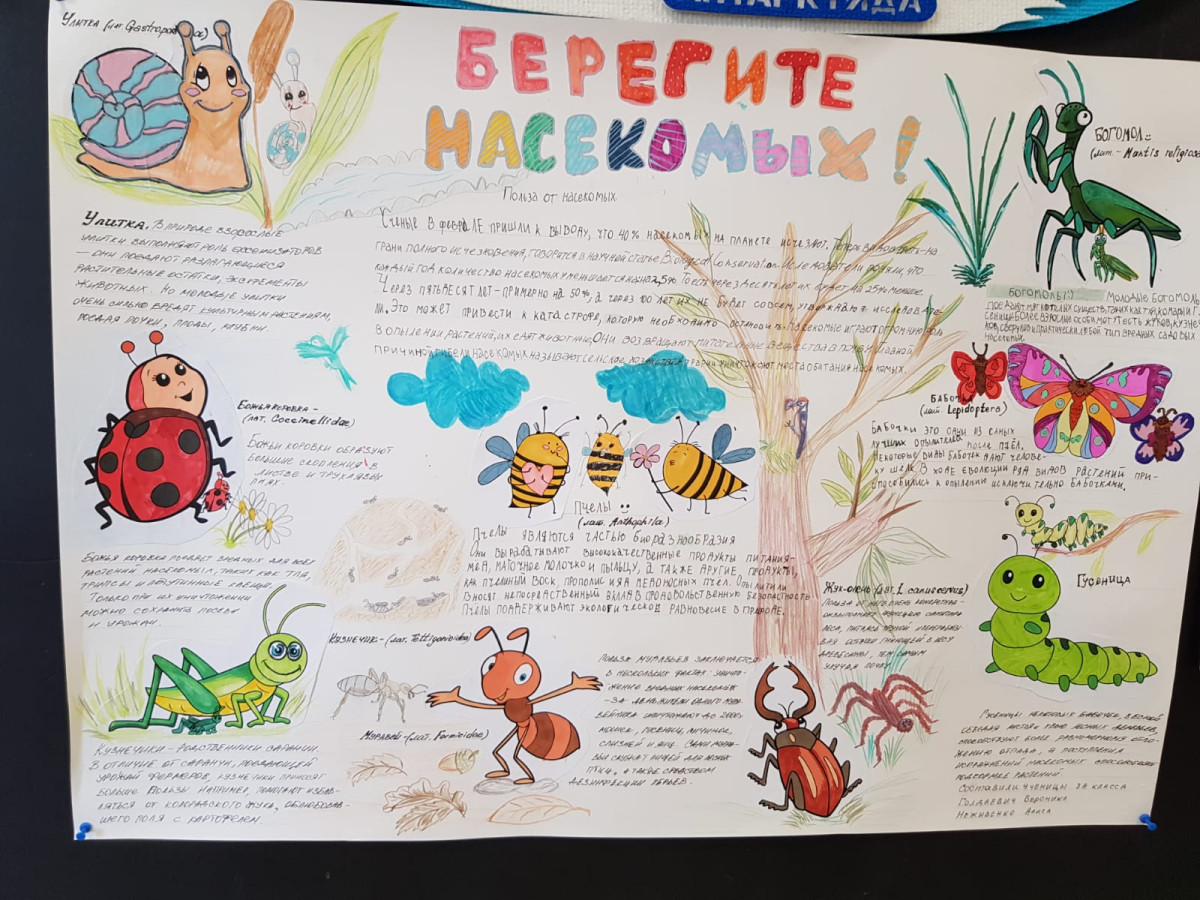 АНТАРКТИДА
Улитка (лат. Gastropoda)
БЕРЕГИТЕ
НАСЕКОМЫХ!
Польза от насекомых
Ученые в феврале пришли к выводу, что 40% насекомых на планете исчезают. Теперь на
грани полного исчезновения, говорится в научной статье Biological Conservation. Исследователи что
каждый год количество насекомых уменьшается на 2,5%. То есть через десять лет их будет на 25% меньше.
Через пятьдесят лет – примерно на 50%, а через 100 лет их не будет совсем, утверждают исследовате-
ли. Это может привести к катастрофе, которую необходимо остановить. Насекомые играют огромную роль
в опылении растений, их едят животные. Они возвращают питательные вещества в почву. Главной
причиной гибели насекомых называют сельское хозяйство: аграрии уничтожают места обитания насекомых.
Улитка. В природе взрослые
улитки выполняют роль
– они поедают разлагающиеся
растительные остатки, экскременты
животных. Но молодые улитки
очень сильно вредят культурным растениям,
поедая почки, плоды, клубни.
БОГОМОЛ::
(лат. - Mantis religiosa
БОГОМОЛЫ:) Молодые богомолы
поедают мягкотелых существ, таких как тля, комары и г
сеницы. Более взрослые особи могут есть жуков, кузне
ков, сверчков и практически любой тип вредных садовых
насекомых
Божья коровка -
(лат. Coccinellidae)
Божьи коровки образуют
большие скопления в
листве и трухлявых
пнях.
Божья коровка поедает важных для всех
растений насекомых, таких как тля,
трипсы и паутинные клещи.
Только при их уничтожении
можно сохранить посевы
и урожаи.
Пчелы :-)
(лат. Anthophila)
Пчелы являются частью биоразнообразия
Они вырабатывают высококачественные продукты питания -
мед, маточное молочко и пыльцу, а также другие продукты,
как пчелиный воск, прополис и яд медоносных пчел. Опылители
вносят непосредственный вклад в продовольственную безопасность
Пчелы поддерживают экологическое равновесие в природе.
Бабочка
(лат. Lepidoptera)
Бабочки это одни из самых
лучших опылителей после пчёл.
Некоторые виды бабочек дают челове-
ку шелк. В ходе эволюции ряд видов растений при-
способились к опылению исключительно бабочками.
Гусеница
Гусеницы некоторых бабочек, в весной
поедая листья лесных деревьев,
способствуют более равномерному
опада, а
насекомых
растений
Составили ученицы 3А класса
Вероника
Алиса
Жук-олень (лат. L. cervus)
Польза от
леса, питаясь
древесины, тем самым
улучшая почву
Кузнечик - (лат. Tettigonioidea)
Кузнечики - родственники саранчи.
В отличие от саранчи, поедающей
урожай фермеров, кузнечики приносят
больше пользы. Например, помогают избав-
ляться от колорадского жука, облюбовав-
шего поля с картофелем.
Муравей - (лат. Formicidae)
Польза муравьев заключается
в нескольких фактах: уничто-
жение вредных насекомых
– за день жители одного мура-
вейника уничтожают до 20000
мошек, гусениц, личинок,
слизней и яиц. Сами мура-
вьи служат пищей для многих
птиц, а также средством
дезинфекции перьев.